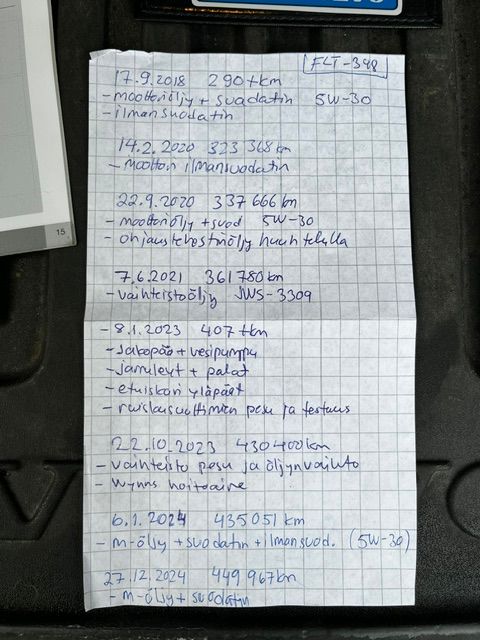 FLT-348
17.9.2018 290tkm
- moottoriöljy + suodatin 5W-30
- ilmansuodatin
14.2.2020 323 368km
- moottorin ilmansuodatin
22.9.2020 337 666km
- moottoriöljy + suod 5W-30
- ohjaustehostinöljy huuhtelulla
7.6.2021 361780km
- vaihteistoöljy JWS-3309
- 8.1.2023 407 tkm
- Jakopää + vesipumppu
- jarrulevyt + palat
- etuiskari yläpäät
- ruiskusuuttimien pesu ja testaus
22.10.2023 430400km
- vaihteisto pesu ja öljynvaihto
- Wynns hoitoaine
6.1.2024 435051 km
- m-öljy + suodatin + ilmansuod. (5W-30)
27.12.2024 449 967km
- m-öljy + suodatin
15